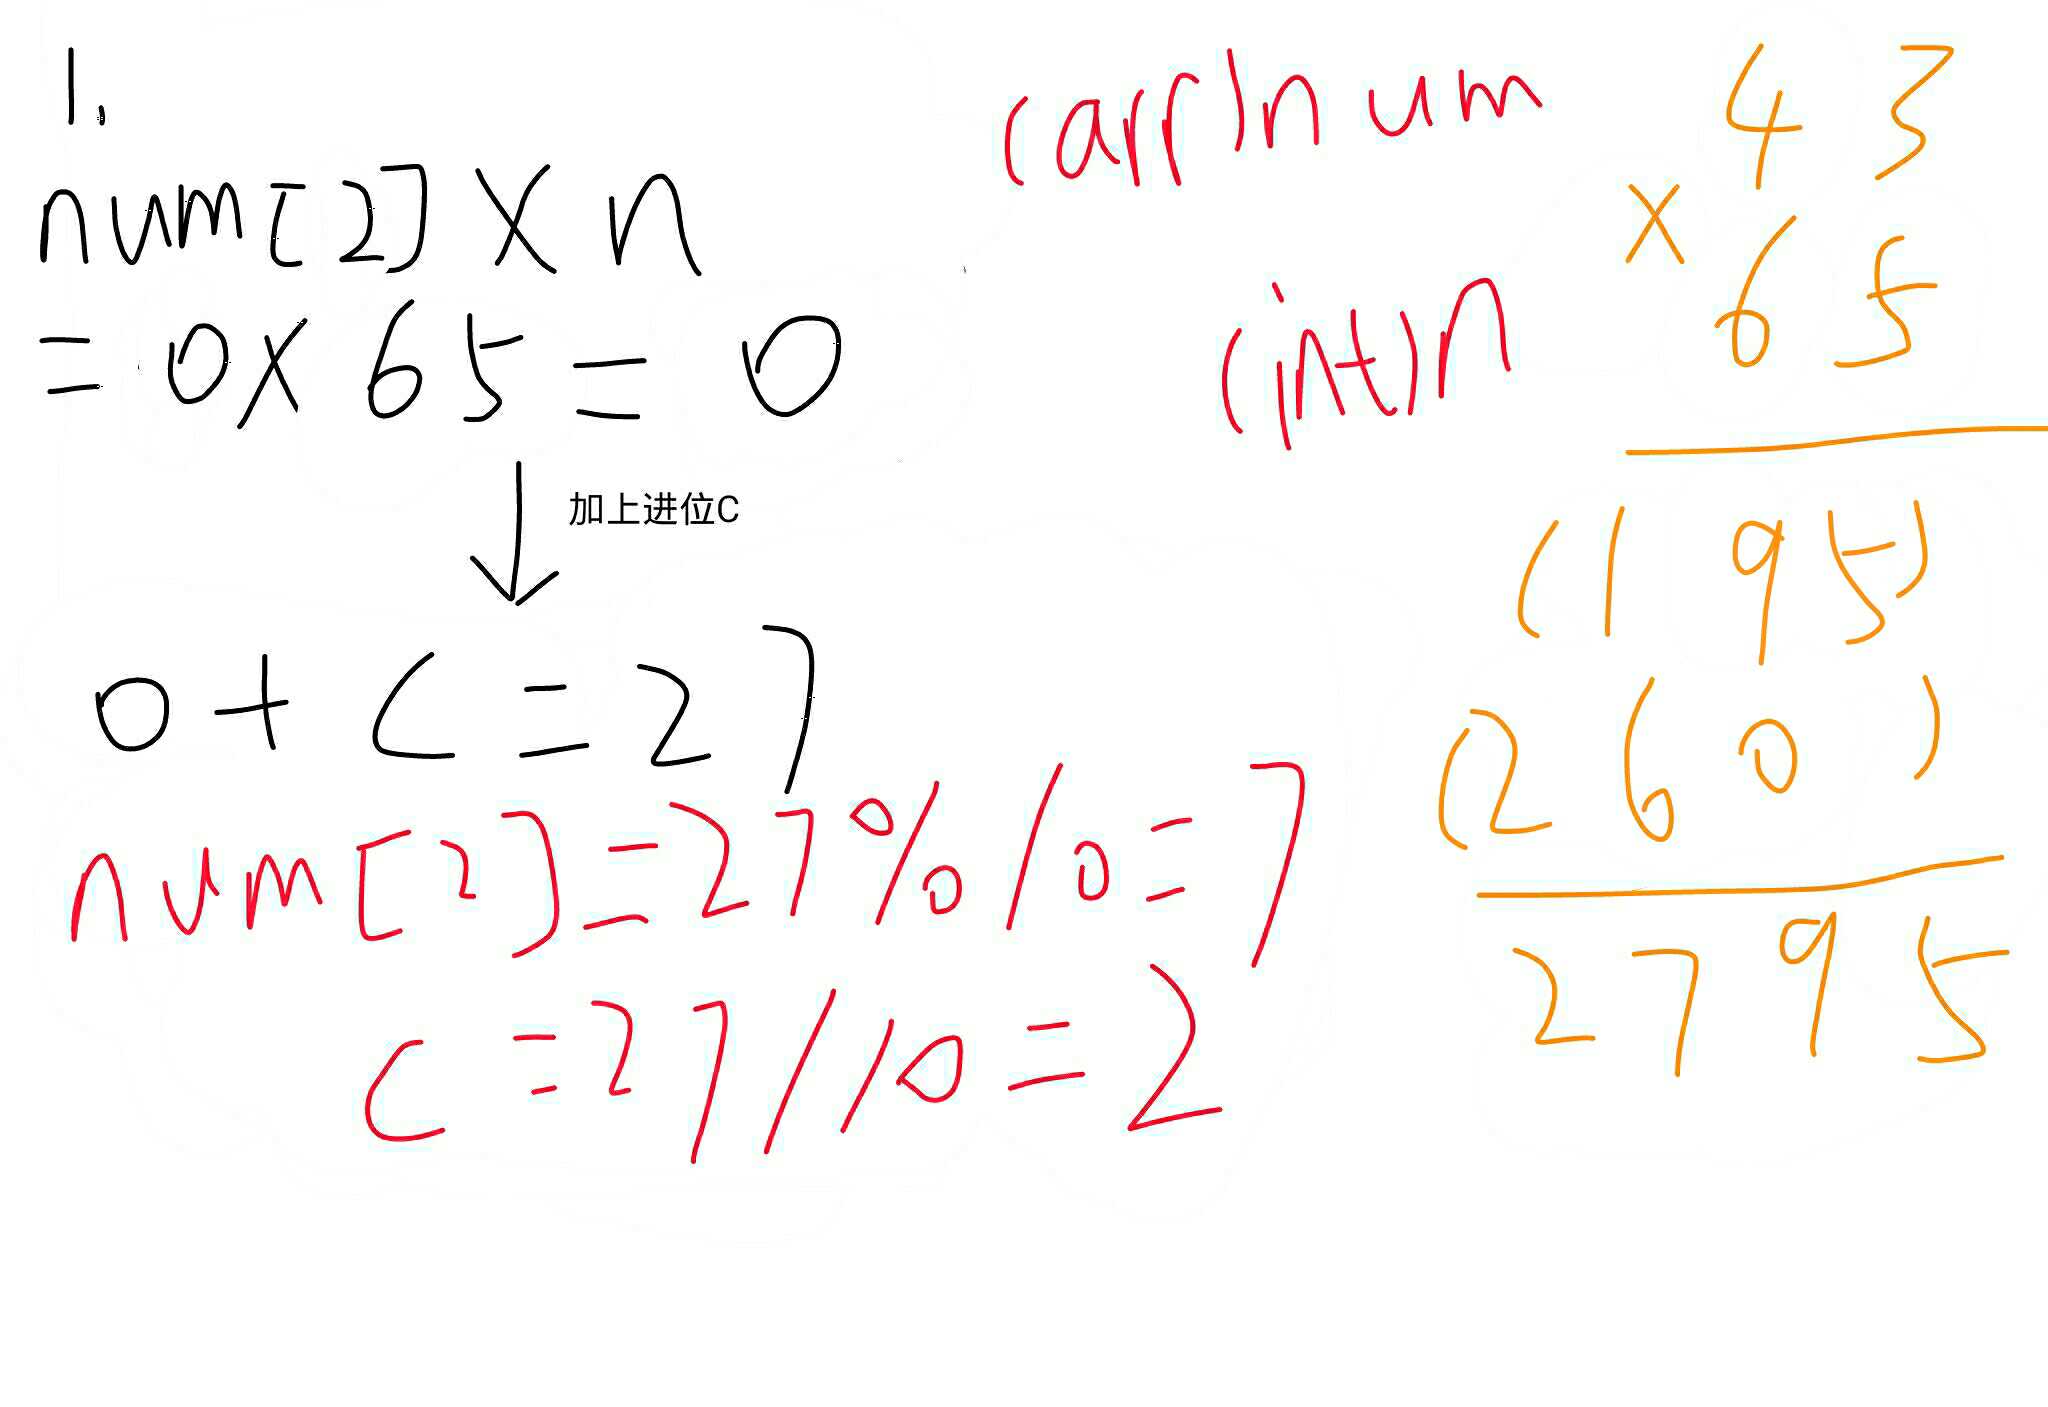 1.
num[2]×n
=0×65=0
加上进位C
0+C=27
num[2]=27%10=7
C=27/10=2
(arr)num
(int)n
43
×65
(195)
(260 )
2795